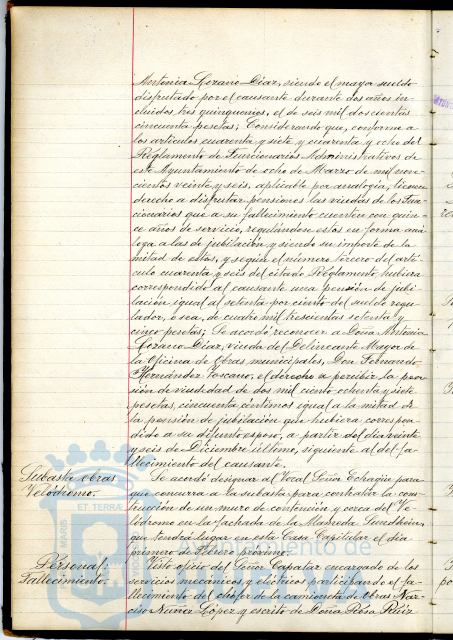 Antonia Lozano Diaz, siendo el mayor sueldo
disfrutado por el causante durante dos años in-
cluidos tres quinquenios, el de seis mil doscientas
cincuenta pesetas; Considerando que, conforme a
los artículos cuarenta y siete y cuarenta y ocho del
Reglamento de Funcionarios Administrativos de
este Ayuntamiento de ocho de Marzo de mil nove-
cientos veinte y seis, aplicable por analogia, tienen
derecho a disfrutar pensiones las viudas de los Fun-
cionarios que a su fallecimiento cuenten con quin-
ce años de servicio, regulándose estos en forma aná-
loga a las de jubilación y siendo su importe de la
mitad de estas, y según el número tercero del artí-
culo cuarenta y seis del citado Reglamento hubiera
correspondido al causante una pensión de jubi-
lación igual al setenta por ciento del sueldo regu-
lador, o sea, de cuatro mil trescientas setenta y
cinco pesetas; Se acordó reconocer a Doña Antonia
Lozano Diaz, viuda del Delineante Mayor de
la Oficina de Obras municipales, Don Fernando
Hernández Toscano, el derecho a percibir la pen-
sión de viudedad de dos mil ciento ochenta y siete
pesetas, cincuenta céntimos igual a la mitad de
la pensión de jubilación que hubiera correspon-
dido a su difunto esposo, a partir del dia veinte
y seis de Diciembre último, siguiente al del fa-
llecimiento del causante.
Subasta obras
Velodromo.
Se acordó designar al Vocal Señor Echagüe para
que concurra a la subasta para contratar la cons-
trucción de un muro de contencion y cerca del Ve-
lódromo en la fachada de la Alameda Sundheim,
que tendrá lugar en esta Casa Capitular el dia
primero de Febrero próximo.
Personal:
Fallecimiento.
Visto oficio del Señor Capataz encargado de los
servicios mecánicos y eléctricos participando el fa-
llecimiento del chófer de la camioneta de Obras Nar-
ciso Nuñez López y escrito de Doña Rosa Ruiz
ET TERRÆ
MARIS
Ayuntamiento de